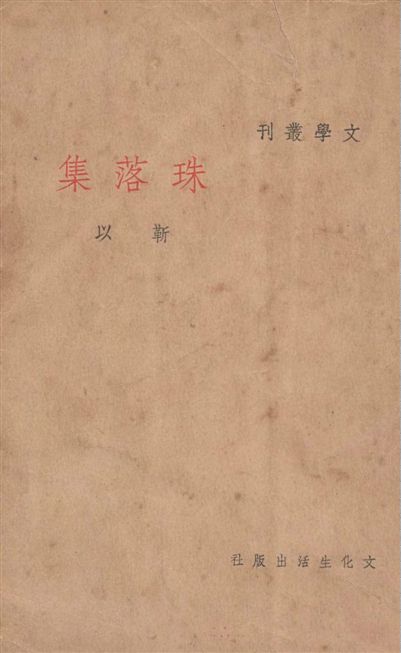 文學叢刊
珠落集
靳以
文化生活出版社